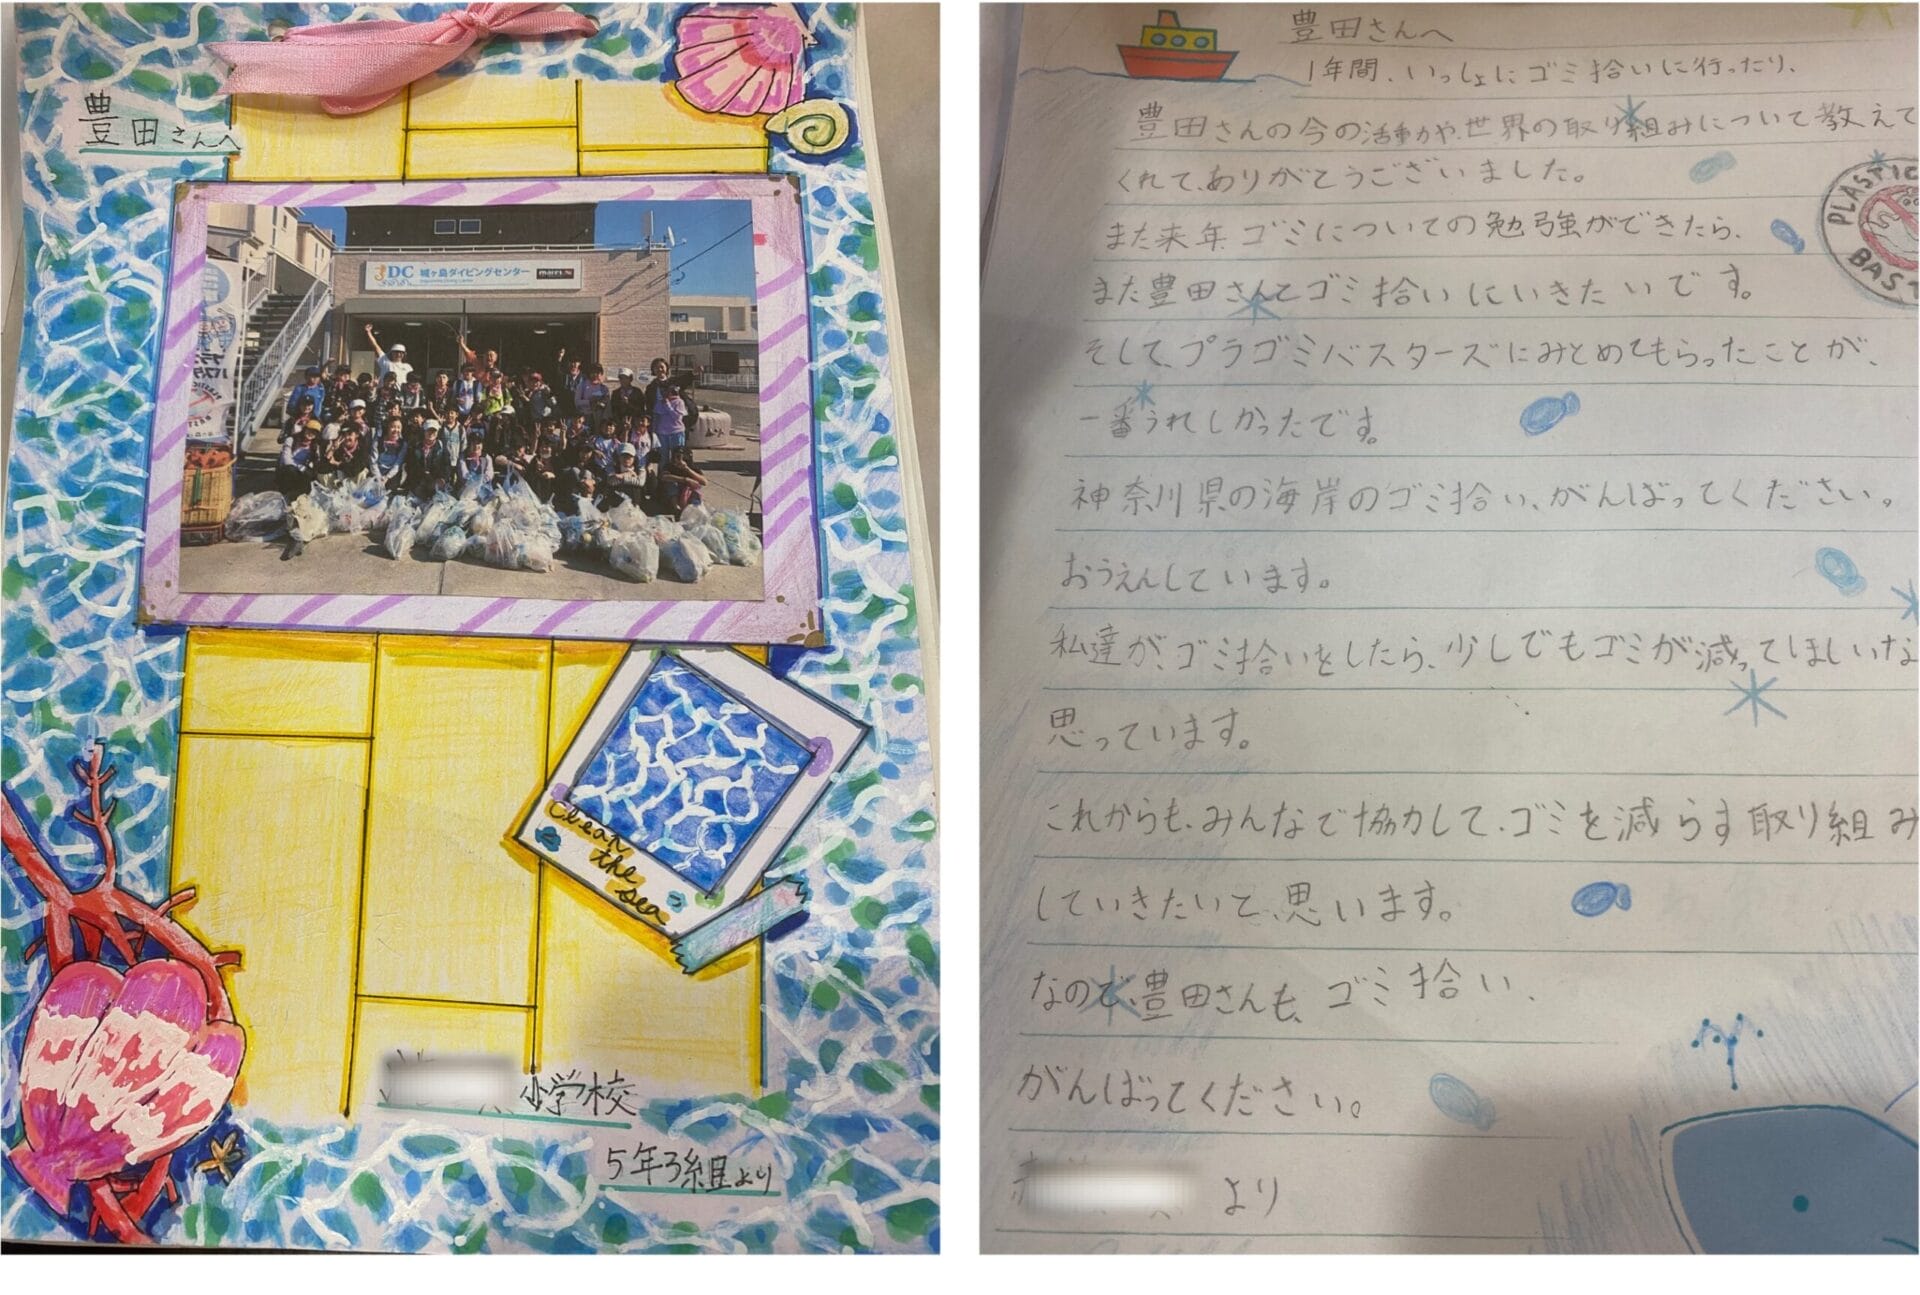 豊田さんへ
DC 城ヶ島ダイビングセンター
Clean
the
sea
小学校
5年3組より
豊田さんへ
1年間、いっしょにゴミ拾いに行ったり、
豊田さんの今の活動や、世界の取り組みについて教えて
くれて、ありがとうございました。
また来年ゴミについての勉強ができたら、
また豊田さんとゴミ拾いにいきたいです。
そして、プラゴミバスターズにみとめてもらったことが、
一番うれしかったです。
神奈川県の海岸のゴミ拾い、がんばってください。
おうえんしています。
私達が、ゴミ拾いをしたら、少しでもゴミが減ってほしいな
思っています。
これからも、みんなで協力して、ゴミを減らす取り組み
していきたいと、思います。
なので、豊田さんも、ゴミ拾い、
がんばってください。
より
PLASTIC
BAST